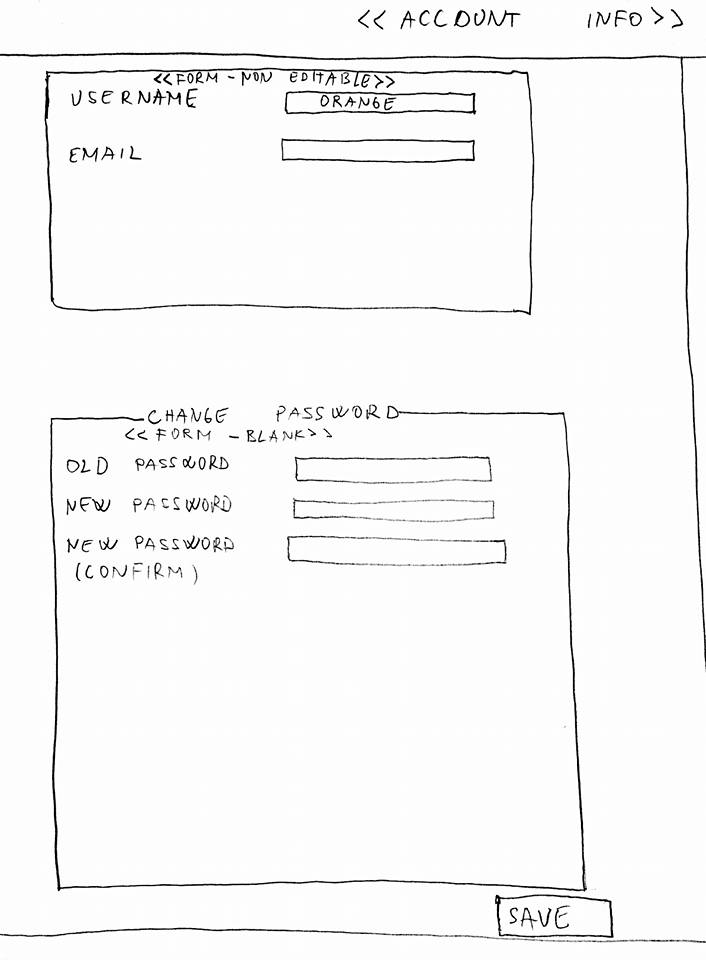 << ACCOUNT INFO >>
<<FORM - NON EDITABLE>>
USERNAME ORANGE
EMAIL
CHANGE PASSWORD
<< FORM - BLANK>>
OLD PASSWORD
NEW PASSWORD
NEW PASSWORD
(CONFIRM)
SAVE